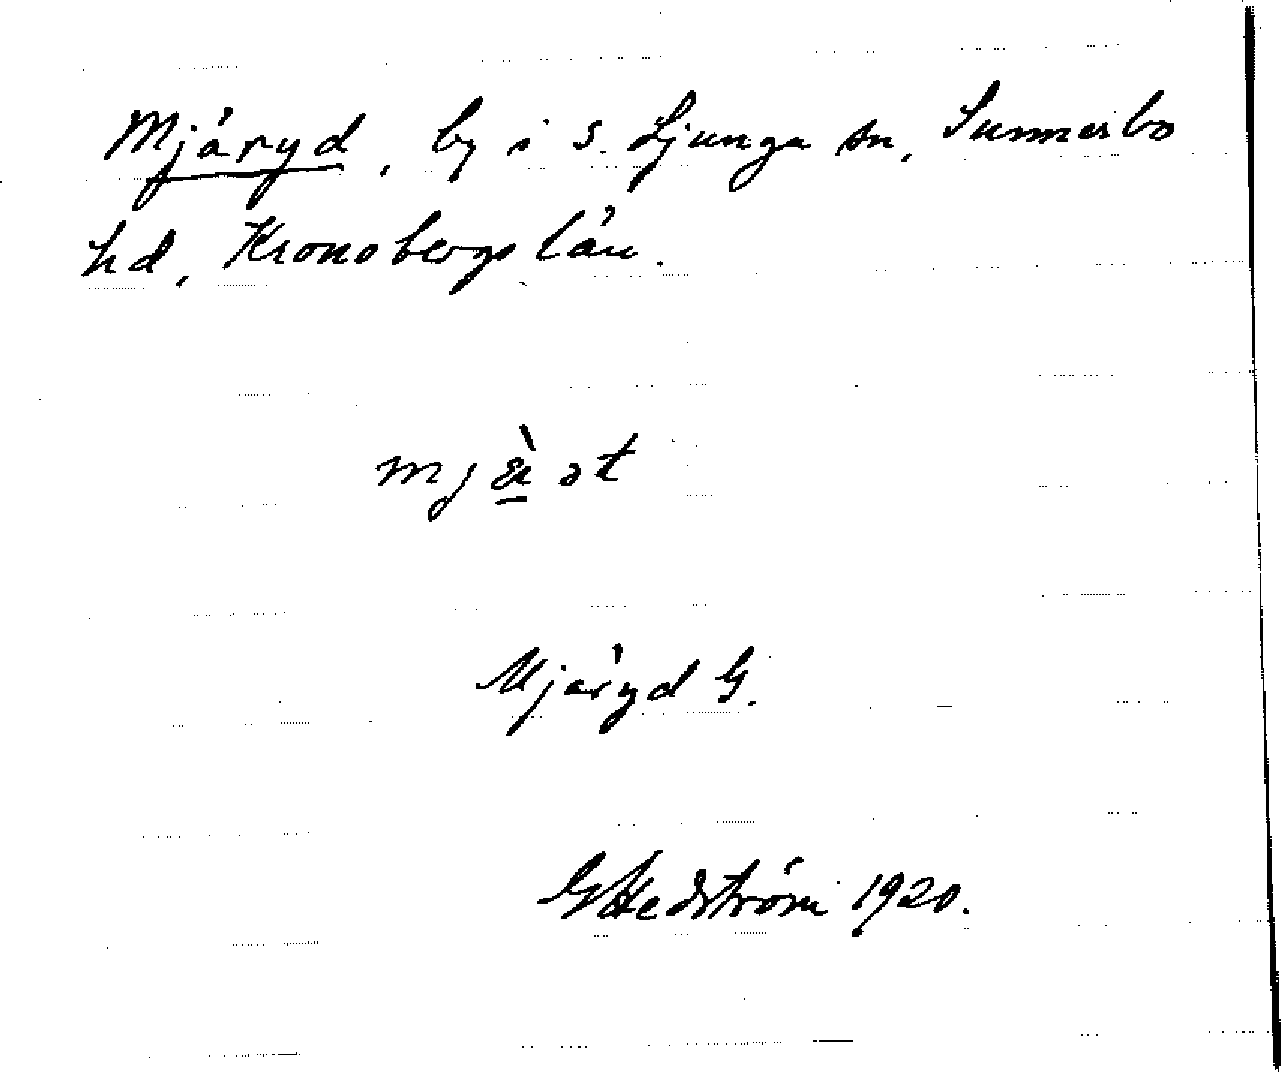 Mjäryd, by i S. Ljunga sn, Sunnerbo
hd, Kronobergs län.
Mjäryd G.
GHedström 1920.